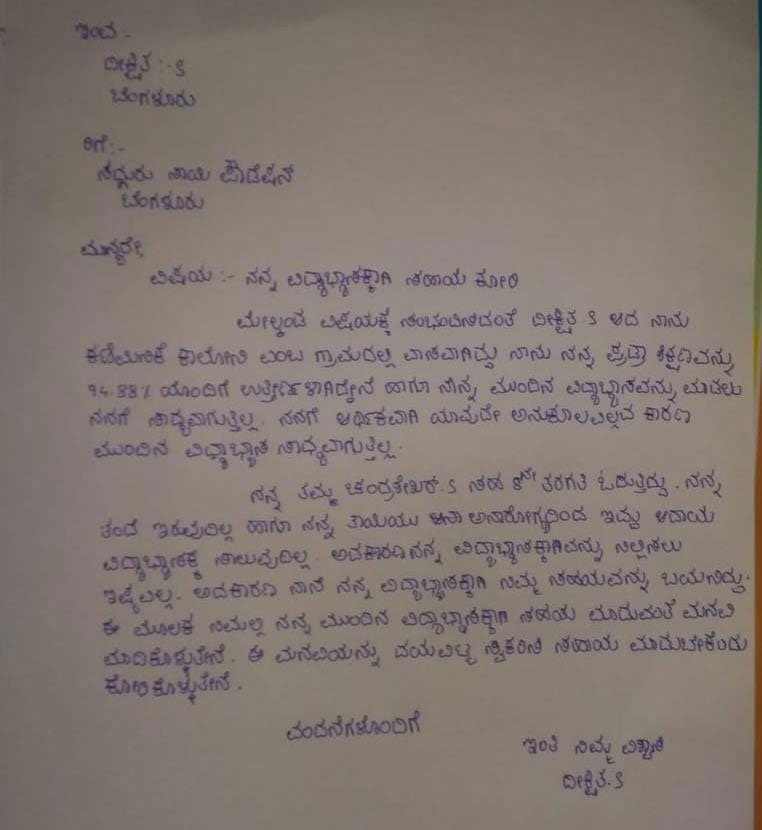 ಇಂದ :-
ದೀಕ್ಷಿತ :- S
ಬೆಂಗಳೂರು
ರಿಗೆ :-
ಸದ್ಗುರು ಸಾಯಿ ಪೌಡೆಷನ್
ಬೆಂಗಳೂರು
ಮಾನ್ಯರೇ,
ವಿಷಯ :- ನನ್ನ ವಿದ್ಯಾಭ್ಯಾಸಕ್ಕಾಗಿ ಸಹಾಯ ಕೋರಿ
ಮೇಲ್ಕಂಡ ವಿಷಯಕ್ಕೆ ಸಂಭಂದಿಸಿದಂತೆ ದೀಕ್ಷಿತ S ಆದ ನಾನು
ಕಾಲೋನಿ ಎಂಬ ಗ್ರಾಮದಲ್ಲಿ ವಾಸವಾಗಿದ್ದು ನಾನು ನನ್ನ ಶಿಕ್ಷಣವನ್ನು
94.88% ಯೊಂದಿಗೆ ಉತ್ತೀರ್ಣಳಾಗಿದ್ದೇನೆ ಹಾಗೂ ನನ್ನ ಮುಂದಿನ ವಿದ್ಯಾಭ್ಯಾಸವನ್ನು ಮಾಡಲು
ನನಗೆ ಸಾಧ್ಯವಾಗುತ್ತಿಲ್ಲ. ನನಗೆ ಆರ್ಥಿಕವಾಗಿ ಯಾವುದೇ ಅನುಕೂಲವಿಲ್ಲದ ಕಾರಣ
ಮುಂದಿನ ವಿದ್ಯಾಭ್ಯಾಸ ಸಾಧ್ಯವಾಗುತ್ತಿಲ್ಲ.
ನನ್ನ ತಮ್ಮ ಚಂದ್ರಶೇಖರ್. S ಸಹ 8ನೇ ತರಗತಿ ಓದುತ್ತಿದ್ದು. ನನ್ನ
ತಂದೆ ಇರುವುದಿಲ್ಲ ಹಾಗೂ ನನ್ನ ತಾಯಿಯು ಅನಾರೋಗ್ಯದಿಂದ ಇದ್ದು ಆದಾಯ
ವಿದ್ಯಾಭ್ಯಾಸಕ್ಕೆ ಸಾಲುವುದಿಲ್ಲ. ಅದಕಾರಣ ನನ್ನ ವಿದ್ಯಾಭ್ಯಾಸಕ್ಕಾಗಿವನ್ನು ನಿಲ್ಲಿಸಲು
ಇಷ್ಟವಿಲ್ಲ. ಅದಕಾರಣ ನಾನೆ ನನ್ನ ವಿದ್ಯಾಭ್ಯಾಸಕ್ಕಾಗಿ ನಿಮ್ಮ ಸಹಯವನ್ನು ಬಯಸಿದ್ದು.
ಈ ಮೂಲಕ ನಿಮಲ್ಲಿ ನನ್ನ ಮುಂದಿನ ವಿದ್ಯಾಭ್ಯಾಸಕ್ಕಾಗಿ ಸಹಯ ಮಾಡುವಂತೆ ಮನವಿ
ಮಾಡಿಕೊಳ್ಳುತ್ತೇನೆ. ಈ ಮನವಿಯನ್ನು ದಯವಿಟ್ಟು ಸ್ವಿಕರಿಸಿ ಸಹಾಯ ಮಾಡಬೇಕೆಂದು
ಕೋರಿಕೊಳ್ಳುತ್ತೇನೆ.
ವಂದನೆಗಳೊಂದಿಗೆ
ಇಂತಿ ನಿಮ್ಮ ವಿಶ್ವಾಸಿ
ದೀಕ್ಷಿತ. S